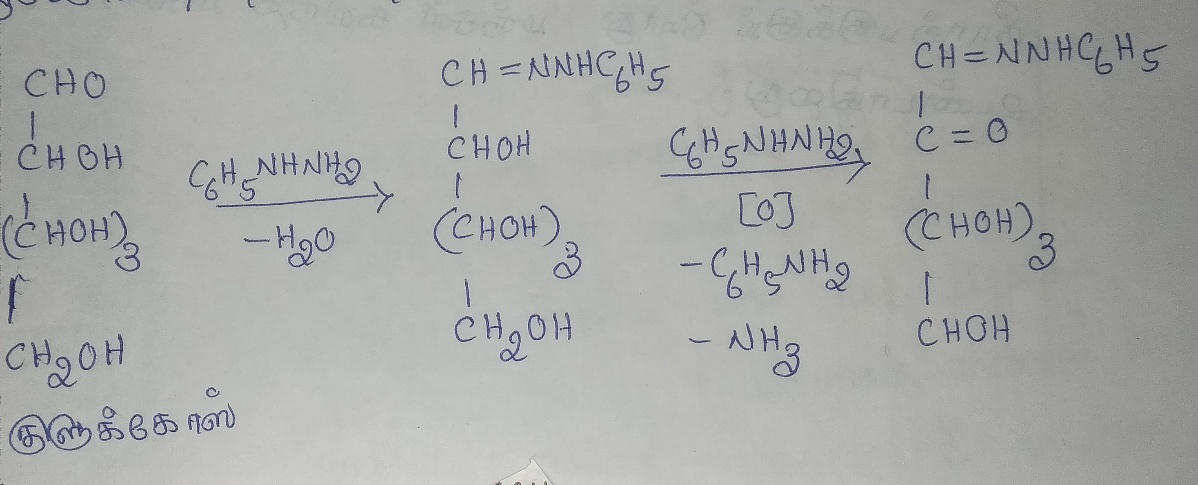 CHO
|
CHOH
|
(CHOH)3
|
CH2OH
குளுக்கோஸ்
C6H5NHNH2
-H2O
CH=NNHC6H5
|
CHOH
|
(CHOH)3
|
CH2OH
C6H5NHNH2
[O]
-C6H5NH2
-NH3
CH=NNHC6H5
|
C=O
|
(CHOH)3
|
CHOH